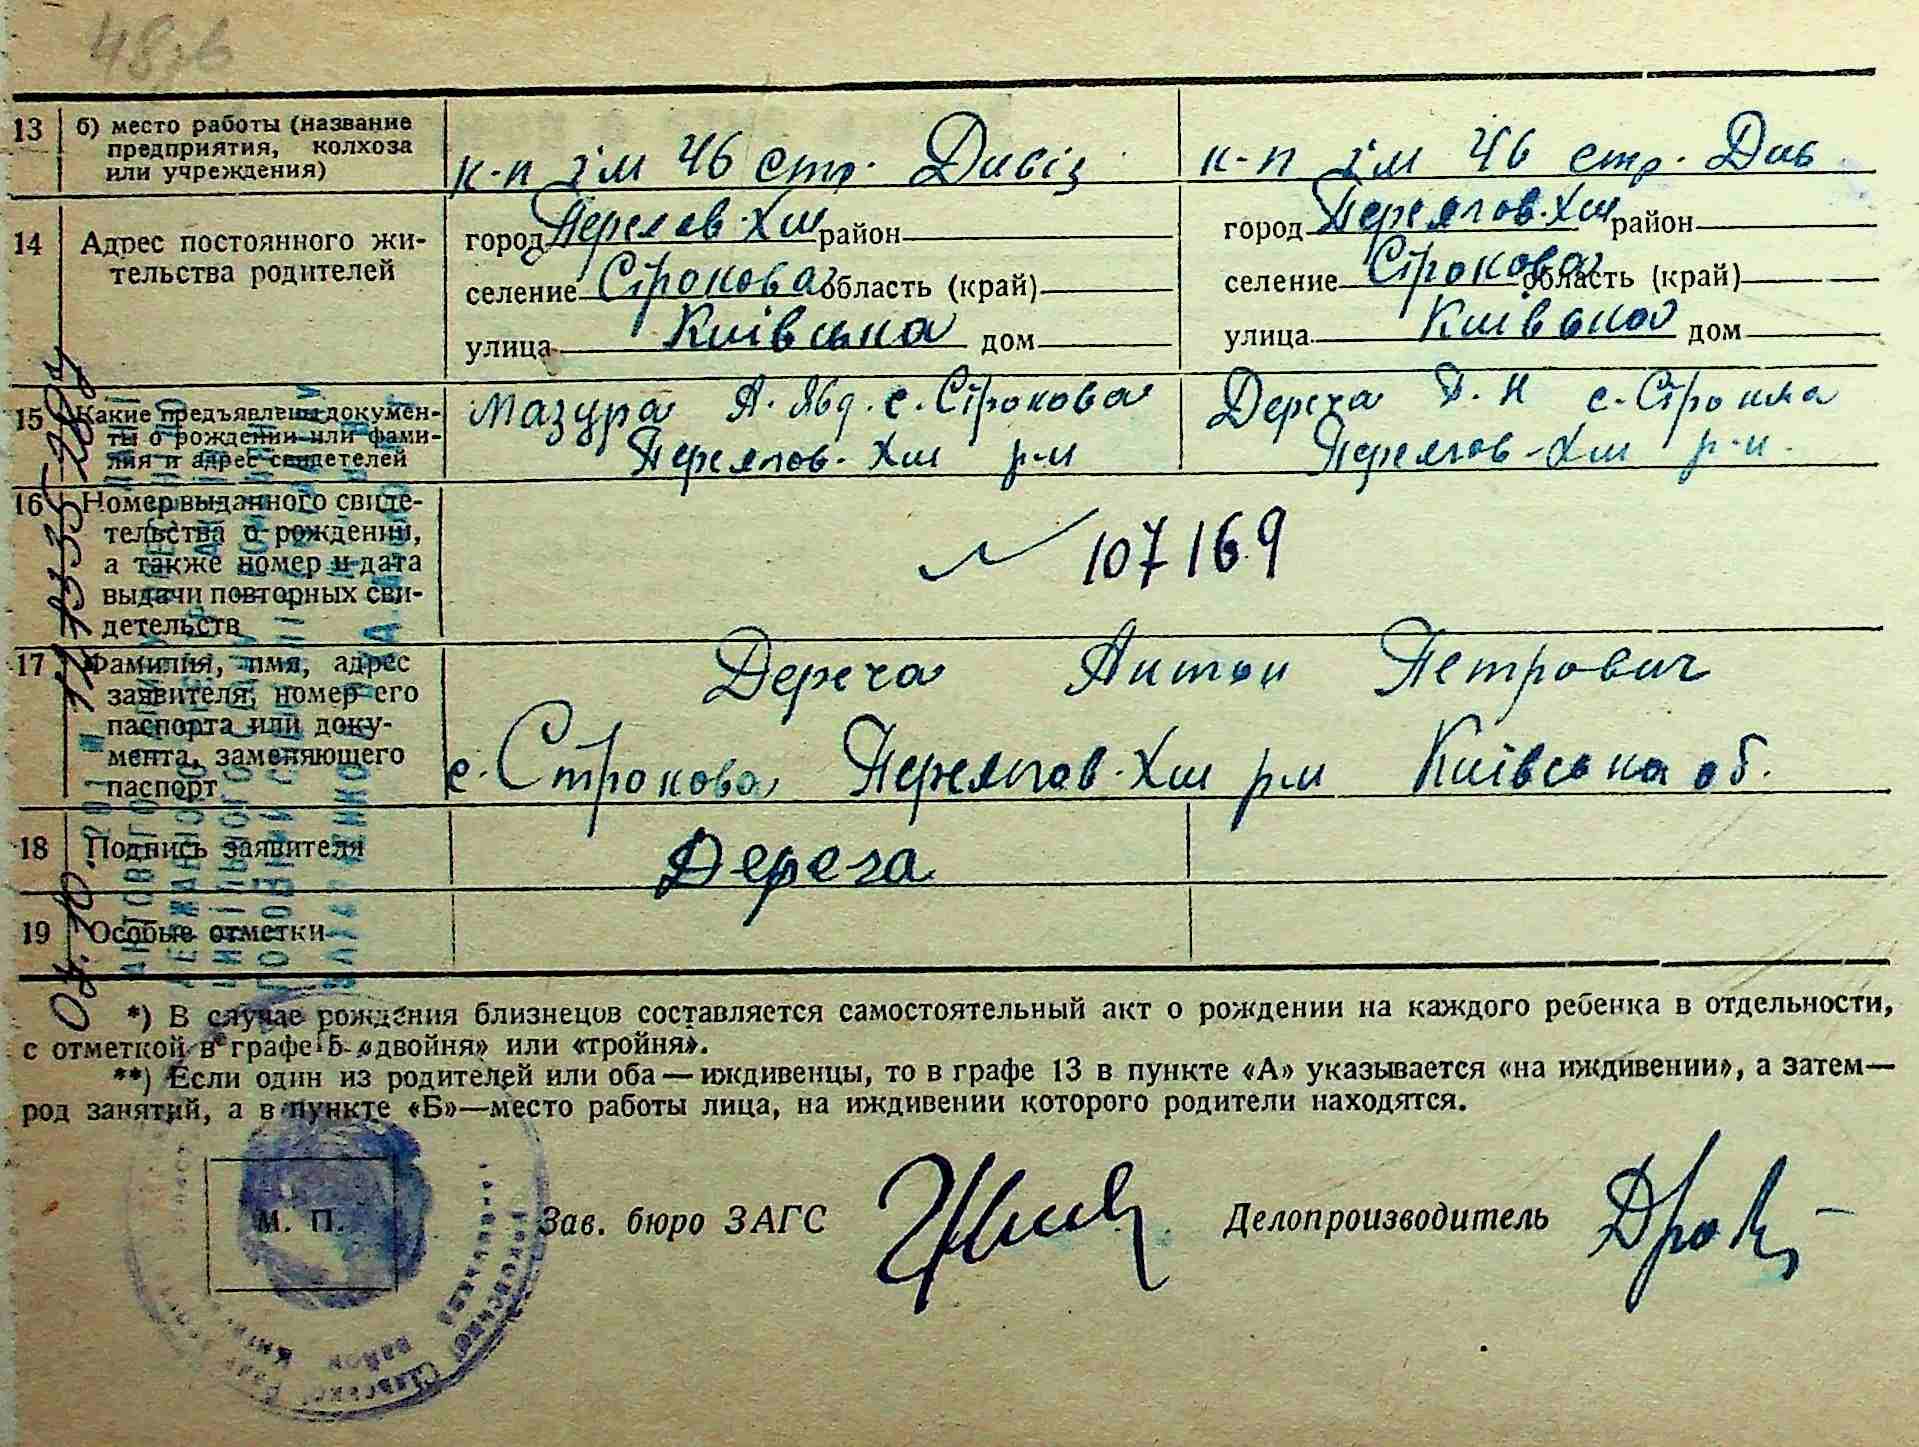 13 б) место работы (название
предприятия, колхоза
или учреждения)
к-п ім 46 стр. Дивіз
к-п ім 46 стр. Див
14 Адрес постоянного жи-
тельства родителей
город Переяв-Хм район
селение Строкова область (край)
улица Київська дом
город Переяслов-Хм район
селение Строкова область (край)
улица Київська дом
15 Какие предъявлены докумен-
ты о рождении или фами-
лия и адрес свидетелей
Мазура А. Явд. с. Строкова
Переяслов-Хм р-н
Дереча Д. Н с. Строкова
Переяслов-Хм р-н.
16 Номер выданного свиде-
тельства о рождении,
а также номер и дата
выдачи повторных сви-
детельств
107169
17 Фамилия, имя, адрес
заявителя, номер его
паспорта или доку-
мента, заменяющего
паспорт
Дереча Антон Петрович
с. Строкова Переяслов-Хм р-н Київська об.
18 Подпись заявителя
Дереча
19 Особые отметки
*) В случае рождения близнецов составляется самостоятельный акт о рождении на каждого ребенка в отдельности,
с отметкой в графе 5 «двойня» или «тройня».
**) Если один из родителей или оба — иждивенцы, то в графе 13 в пункте «А» указывается «на иждивении», а затем—
род занятий, а в пункте «Б»—место работы лица, на иждивении которого родители находятся.
М. П.
Зав. бюро ЗАГС
Делопроизводитель